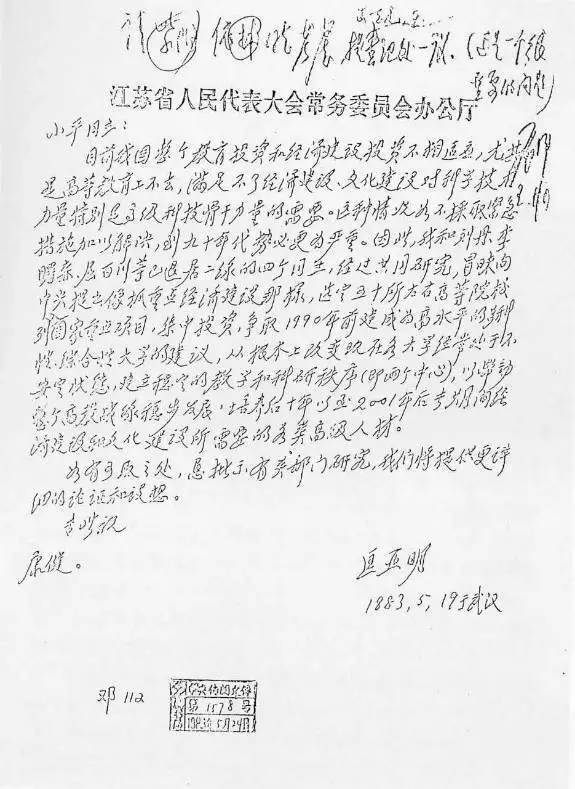 请紫阳 依林 阅 考虑
提书记处一议。(这是一个很
重要的问题)
江苏省人民代表大会常务委员会办公厅
小平同志:
目前我国整个教育投资和经济建设投资不相适应,尤其
是高等教育上不去,满足不了经济建设、文化建设对科学技术
力量特别是高级科技骨干力量的需要。这种情况如不采取紧急
措施加以解决,到九十年代势必更为严重。因此,我和刘丹、李
曙森、屈伯川等已退居二线的四个同志,经过共同研究,冒昧向
中央提出像抓重点经济建设那样,选定五十所左右高等院校
列为国家重点项目,集中投资,争取1990年前建成为高水平的
性、综合性大学的建议,从根本上改变现在各大学经常处于不
安定状态,建立稳定的教学和科研秩序(即两个中心),以带动
整个高教战线稳步发展,培养后十年以至2001年后长期间经
济建设和文化建设所需要的各类高级人材。
如有可取之处,恳批示有关部门研究,我们将提供更详
细的论证和设想。
专此 祝
康健。
匡亚明
1883,5,19于武汉
邓 112
第 1578 号
1983年5月24日